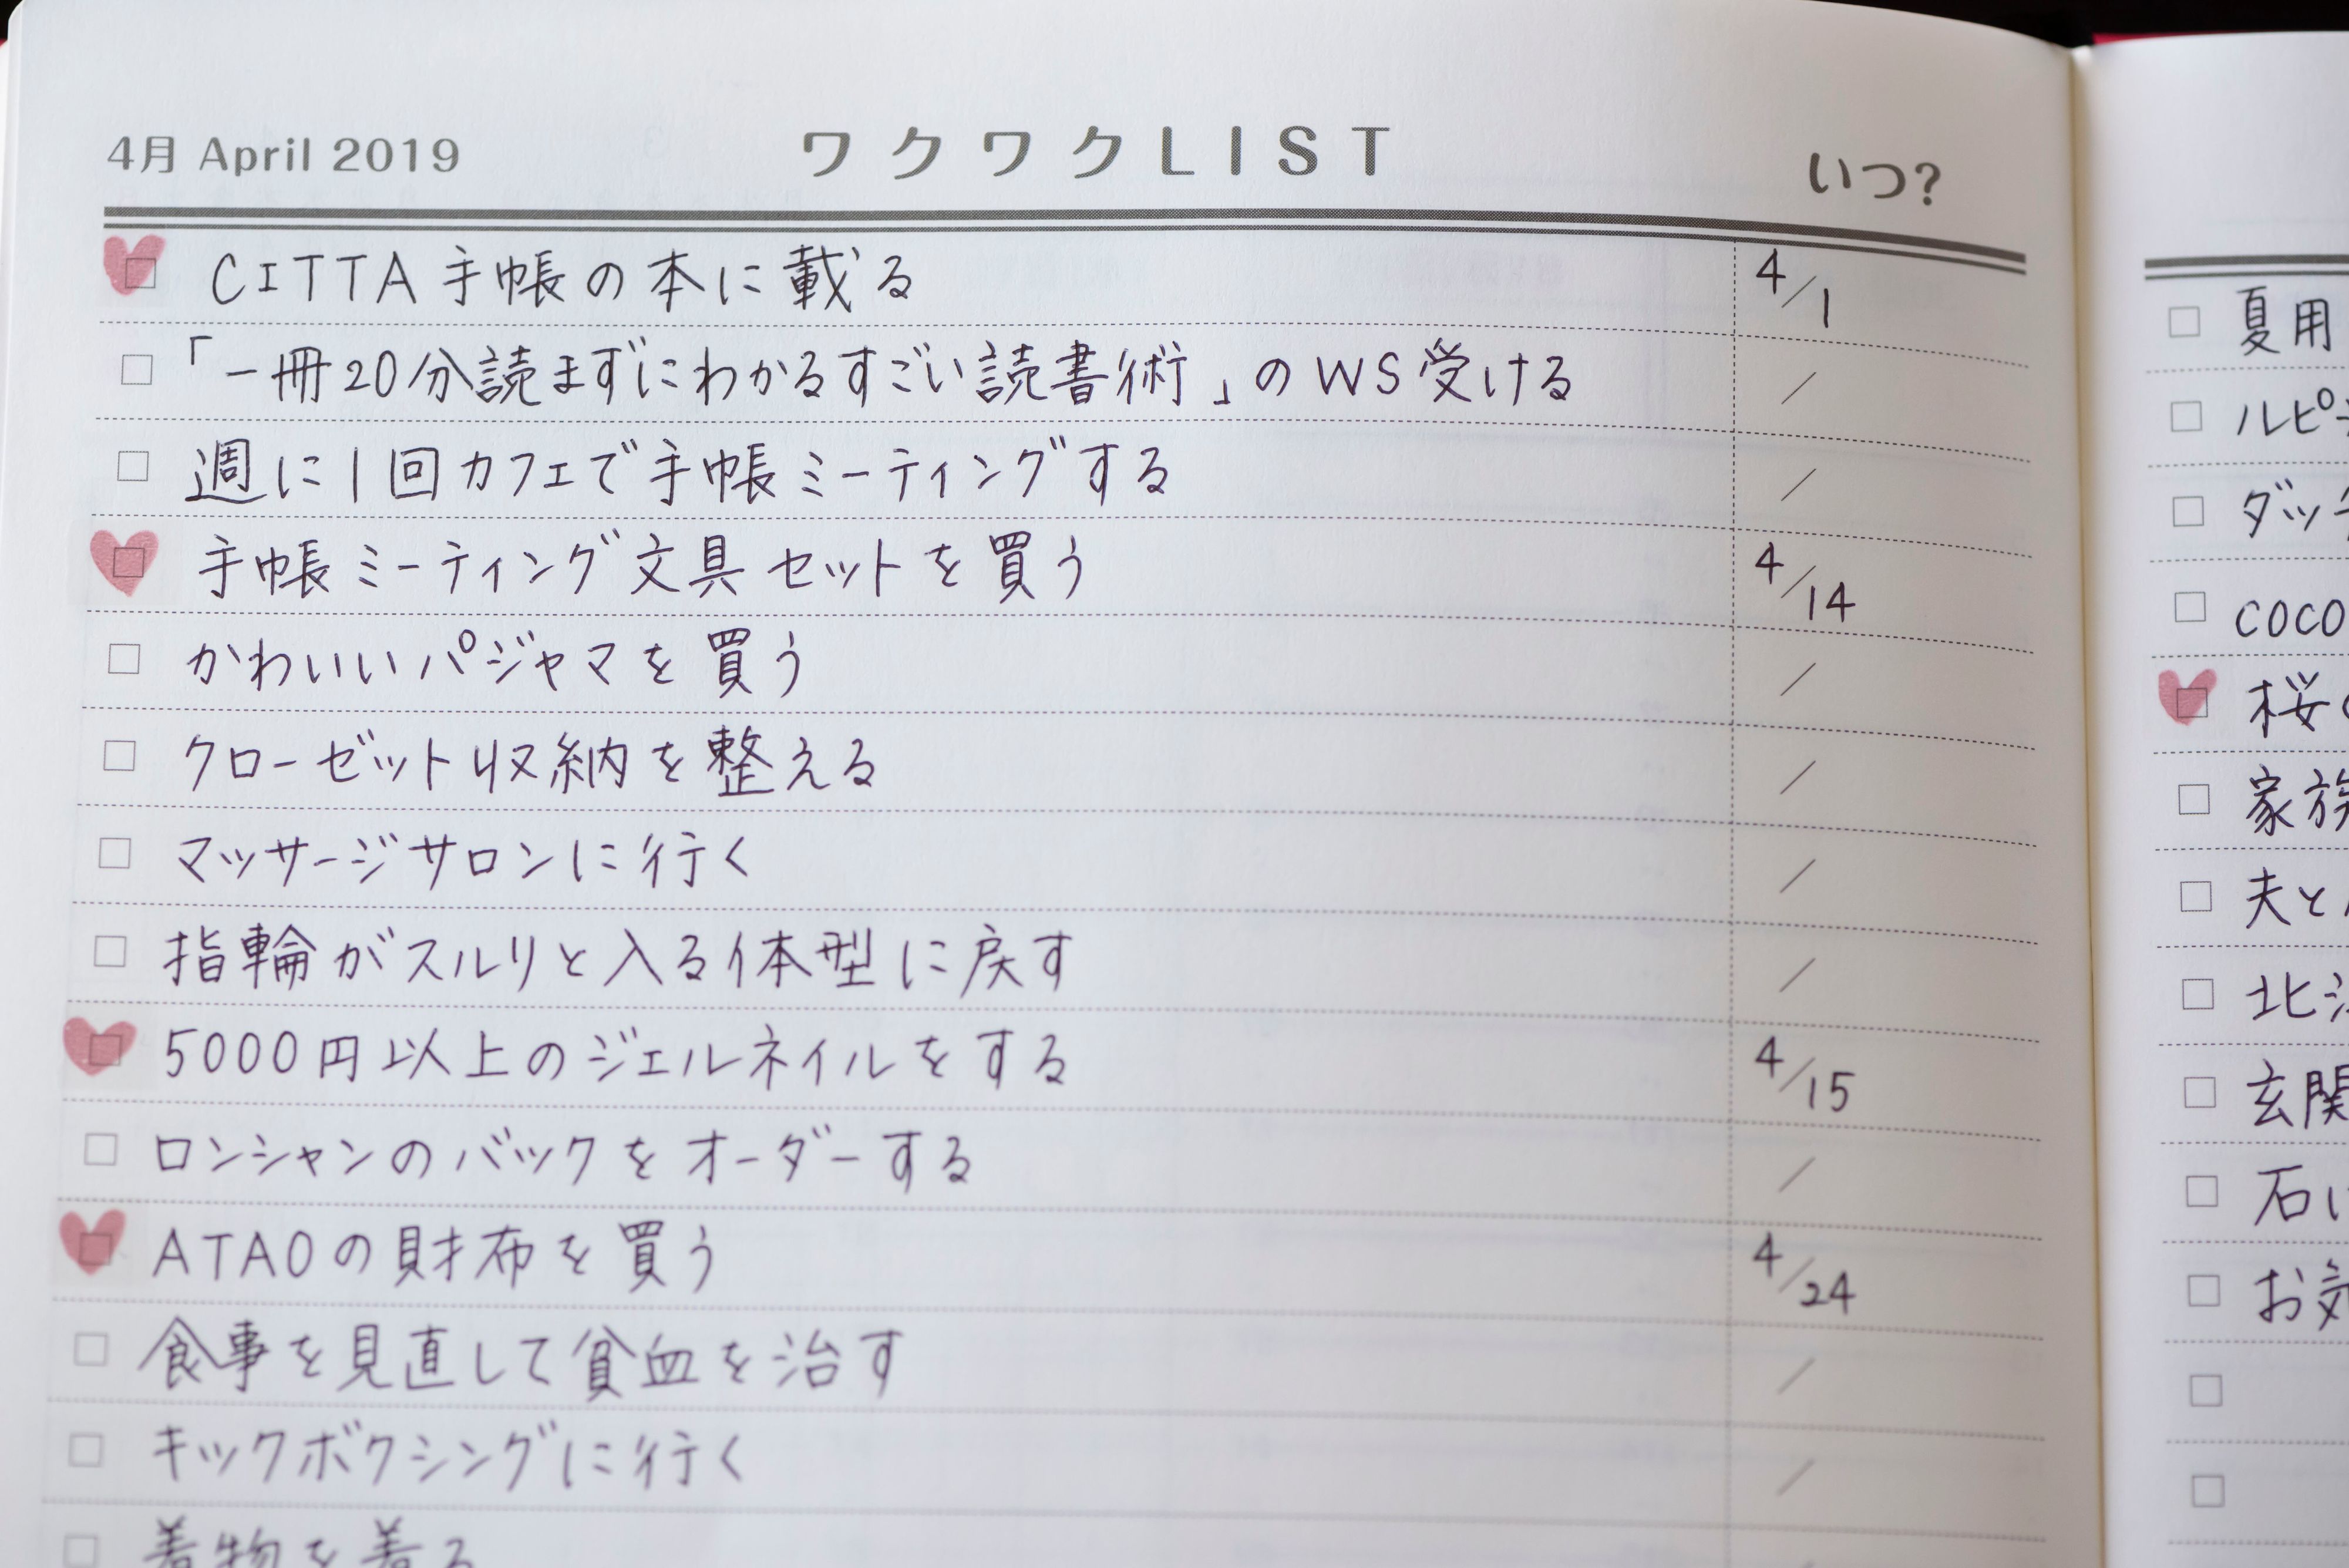 4月 April 2019 ワクワクLIST いつ?
CITTA手帳の本に載る 4/1
「一冊20分読まずにわかるすごい読書術」のWS受ける /
週に1回カフェで手帳ミーティングする /
手帳ミーティング文具セットを買う 4/14
かわいいパジャマを買う /
クローゼット収納を整える /
マッサージサロンに行く /
指輪がスルリと入る体型に戻す /
5000円以上のジェルネイルをする 4/15
ロンシャンのバックをオーダーする /
ATAOの財布を買う 4/24
食事を見直して貧血を治す /
キックボクシングに行く /
着物を着る
夏用
ルピ
ダッ
COCO
桜
家族
夫と
北
玄関
石
お気